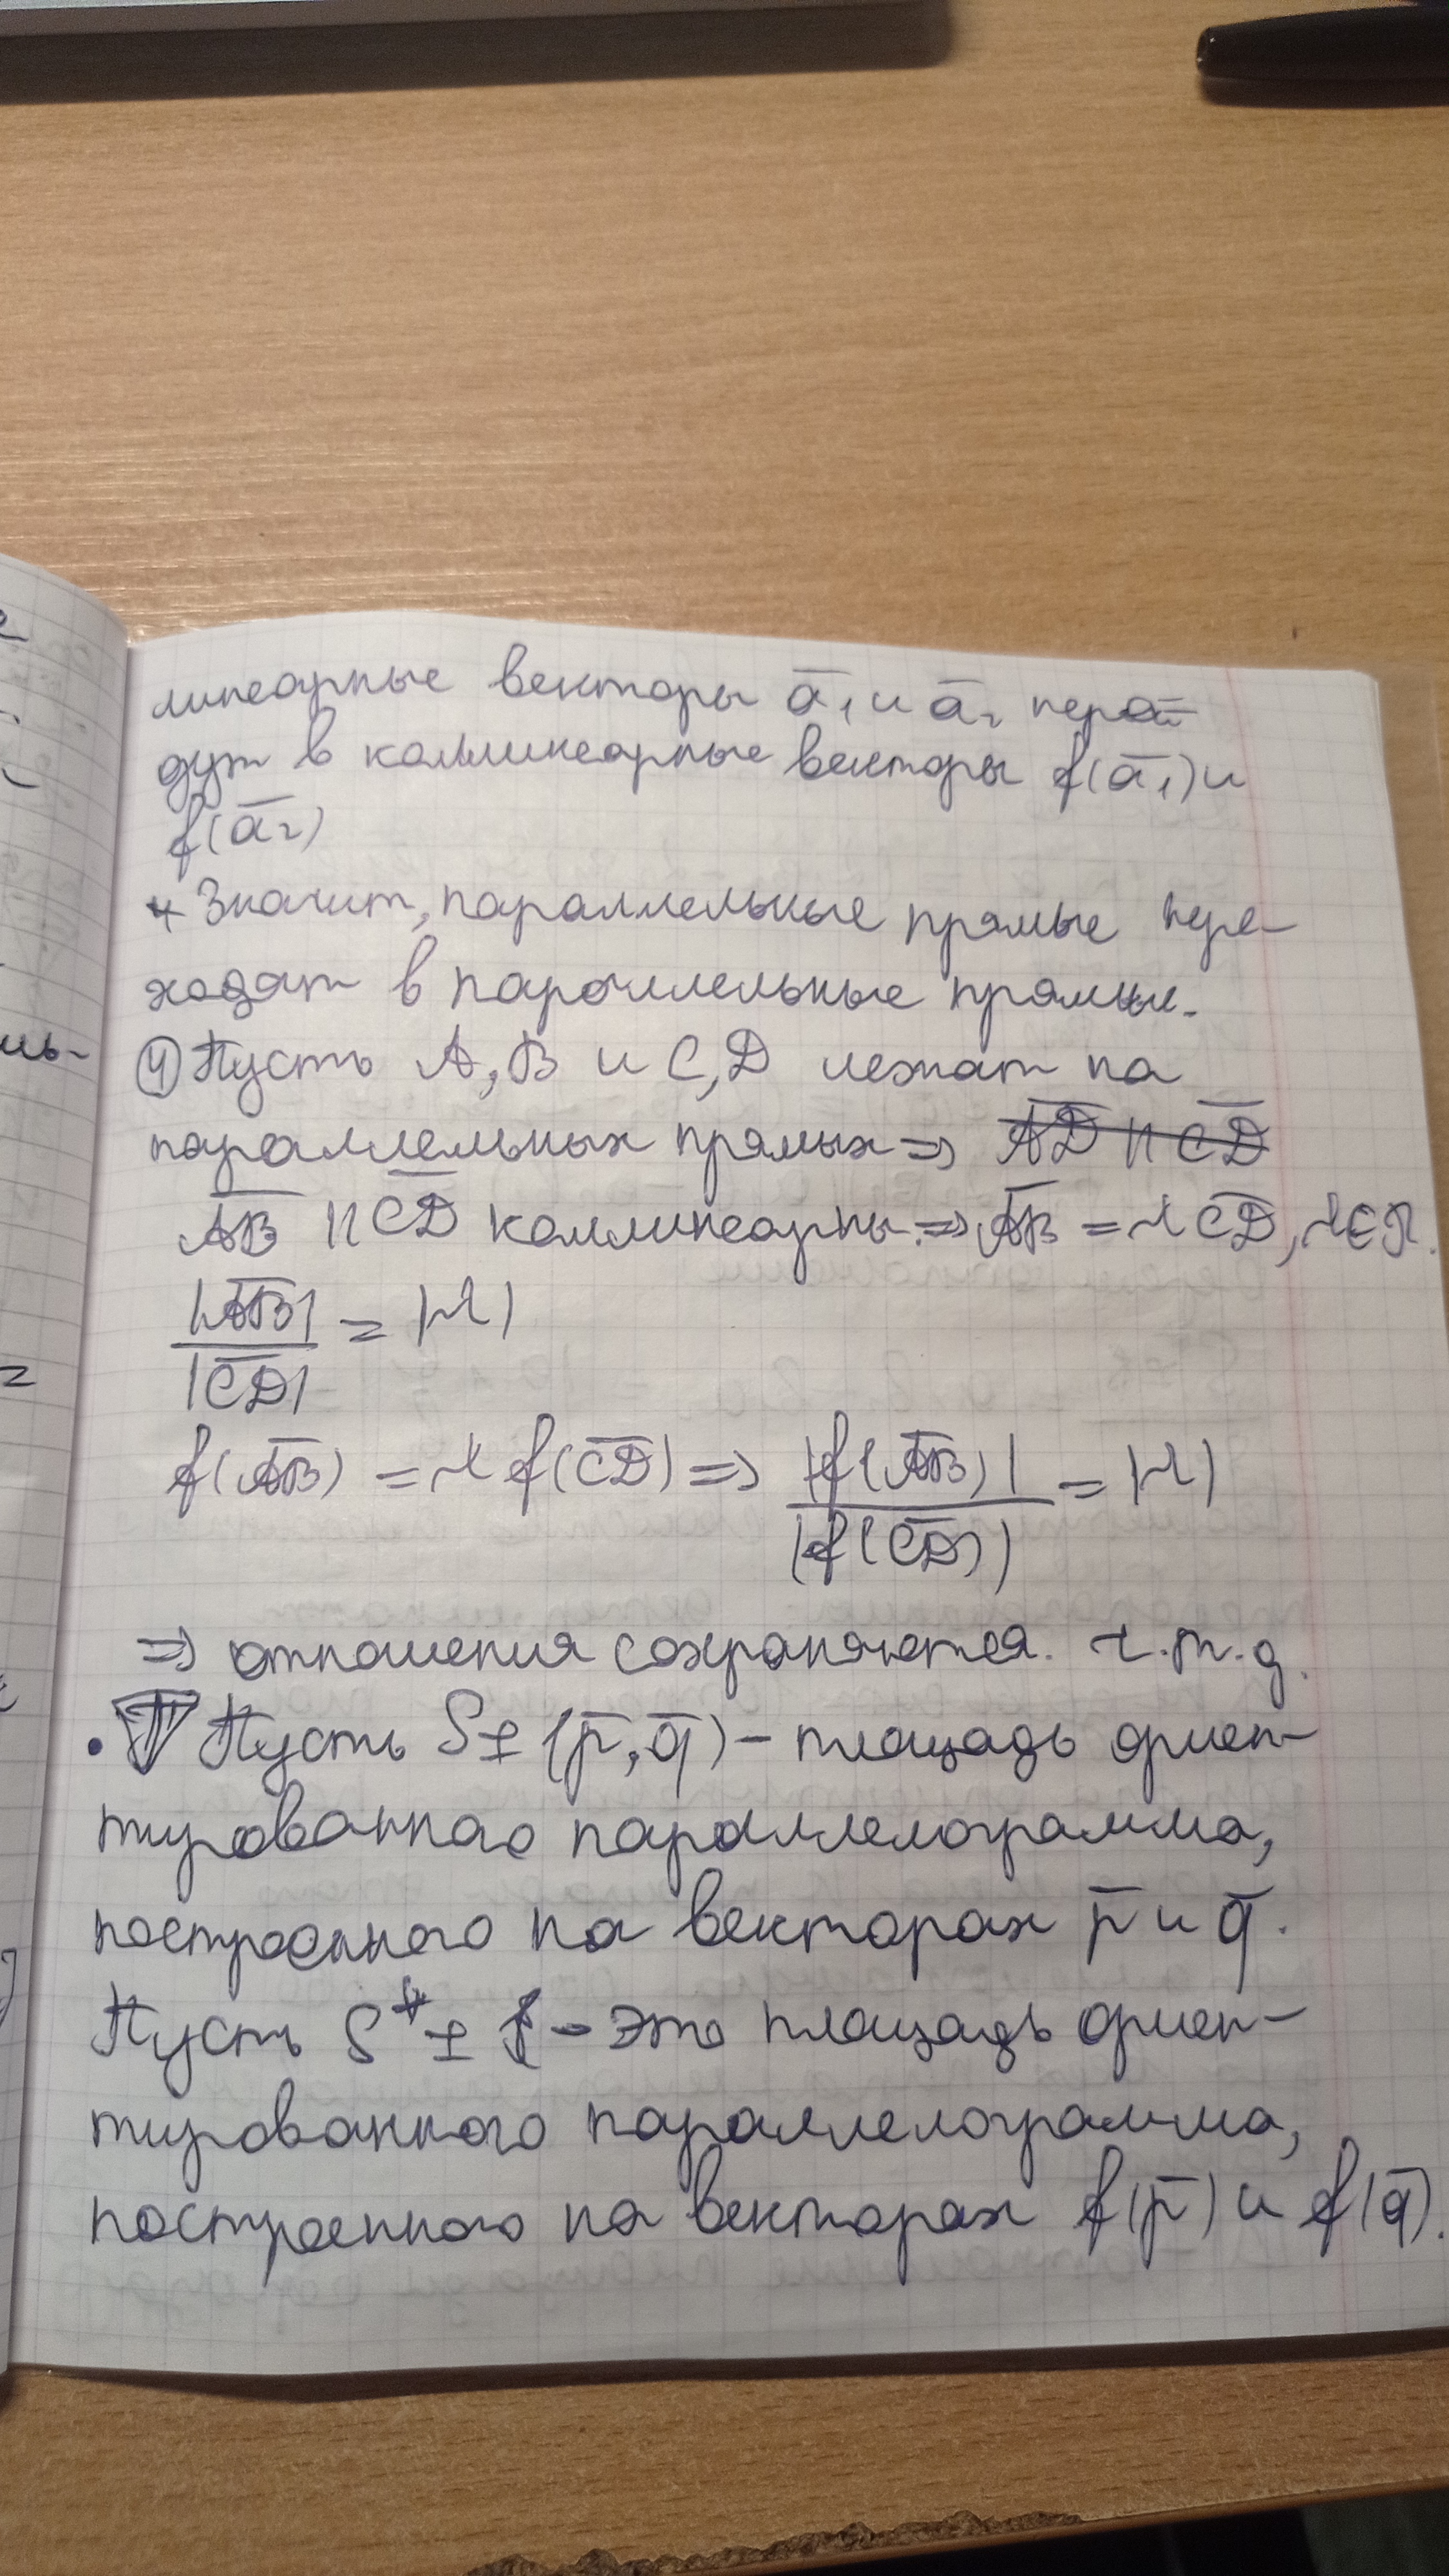 линеарные векторы a̅₁ и a̅₂ перей
дут в коллинеарные векторы f(a̅₁) и
f(a̅₂)
Значит, параллельные прямые пере-
ходят в параллельные прямые.
④ Пусть A, B и C, D лежат на
параллельных прямых => A̅D̅ || C̅D̅
A̅B̅ || C̅D̅ коллинеарны. => A̅B̅ = λ C̅D̅, λ∈R.
|A̅B̅| / |C̅D̅| = |λ|
f(A̅B̅) = λ f(C̅D̅) => |f(A̅B̅)| / |f(C̅D̅)| = |λ|
=> отношения сохраняются. ч.т.д.
• T Пусть S± (p̅, q̅) – площадь ориен-
тированного параллелограмма,
построенного на векторах p̅ и q̅.
Пусть S*± – это площадь ориен-
тированного параллелограмма,
построенного на векторах f(p̅) и f(q̅).